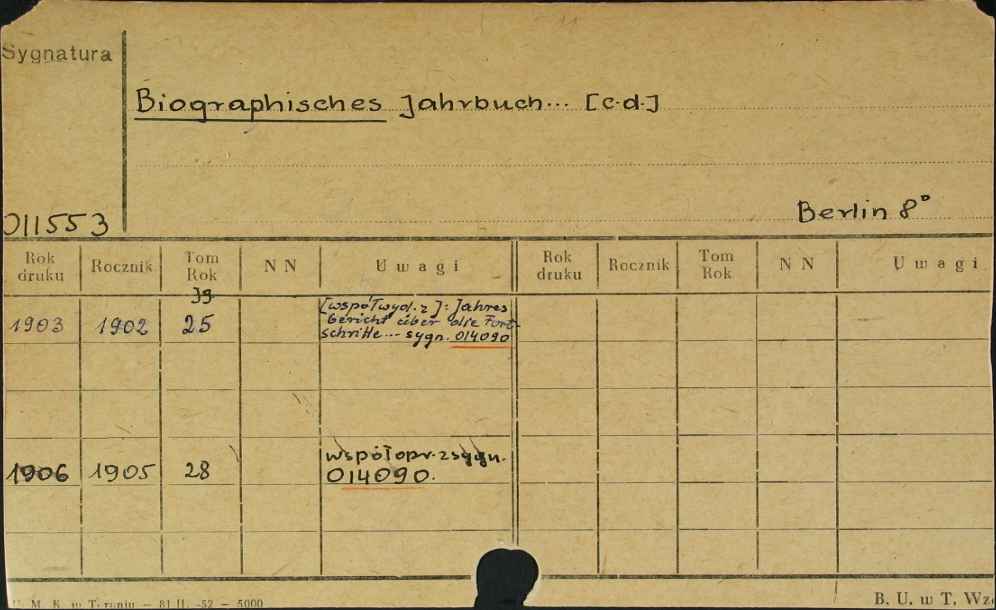 Sygnatura
Biographisches Jahrbuch... [c.d.]
011553
Berlin 8°
Rok druku Rocznik Tom Rok NN Uwagi Rok druku Rocznik Tom Rok NN Uwagi
Jg
1903 1902 25 [współwyd. z]: Jahres
bericht über die Fort-
schritte... sygn. 014090
1906 1905 28 współopr. z sygn.
014090.
M. K. w Toruniu — 81 II. -52 — 5000
B. U. w T. Wzó